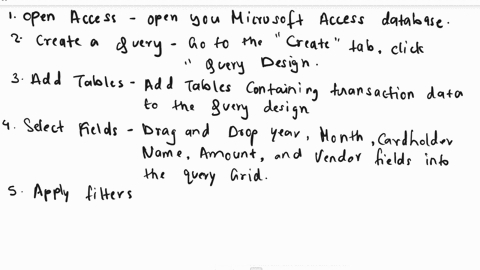 1. Open Access - open you Microsoft Access database.
2. Create a Query - Go to the "Create" tab, click
" Query Design.
3. Add Tables - Add Tables Containing transaction data
to the Query design
4. Select Fields - Drag and Drop year, Month, Cardholder
Name, Amount, and Vendor fields into
the query Grid.
5. Apply filters